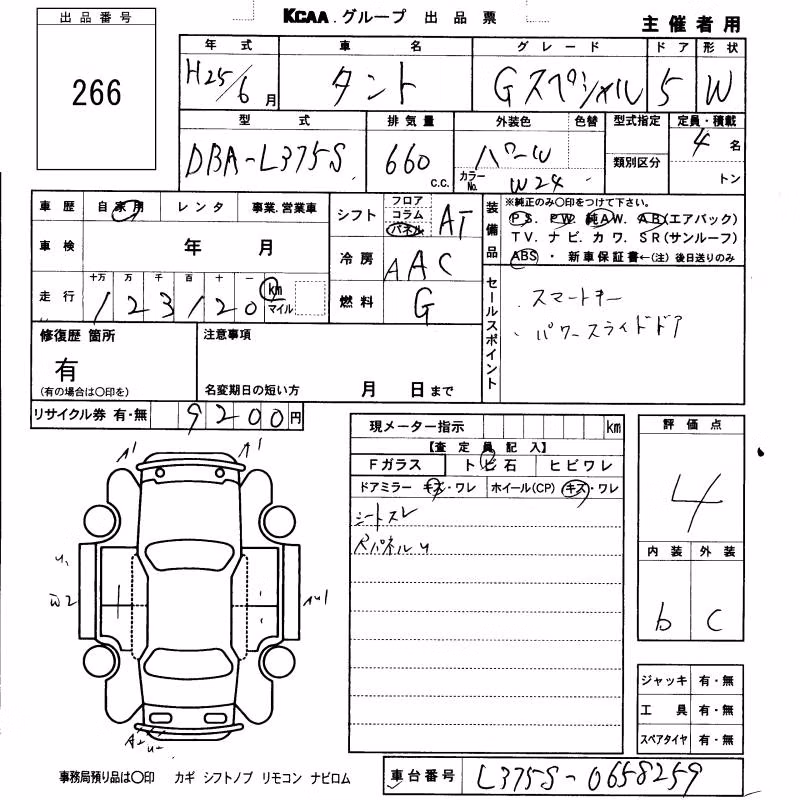 KCAA.グループ 出品票
主催者用
出品番号
266
年式 車名 グレード ドア 形状
H25/6月 タント Gスペシャル 5 W
型式 排気量 外装色 色替 型式指定 定員・積載
DBA-L375S 660 C.C. パワーW 類別区分 4名
カラーNo. W24 トン
車歴 自家用 レンタ 事業.営業車
シフト フロア コラム パネル AT
装備品 ※純正のみ〇印をつけて下さい。
PS. PW. 純AW. AB(エアバック)
TV. ナビ. カワ. SR(サンルーフ)
ABS ・ 新車保証書←(注) 後日送りのみ
車検 年 月
冷房 AAC
走行 十万 万 千 百 十 一 km マイル
123120
燃料 G
セールスポイント
スマートキー
パワースライドドア
修復歴 箇所
有
(有の場合は〇印を)
注意事項
名変期日の短い方 月 日まで
リサイクル券 有・無 9200円
現メーター指示 km
【査定員記入】
Fガラス トビ石 ヒビワレ
ドアミラー キズ・ワレ ホイール(CP) キズ・ワレ
シートスレ
評価点
4
内装 外装
b C
A1 A1
U1
W2
AU1
ジャッキ 有・無
工具 有・無
スペアタイヤ 有・無
事務局預り品は〇印 カギ シフトノブ リモコン ナビロム
車台番号 L375S-0658259